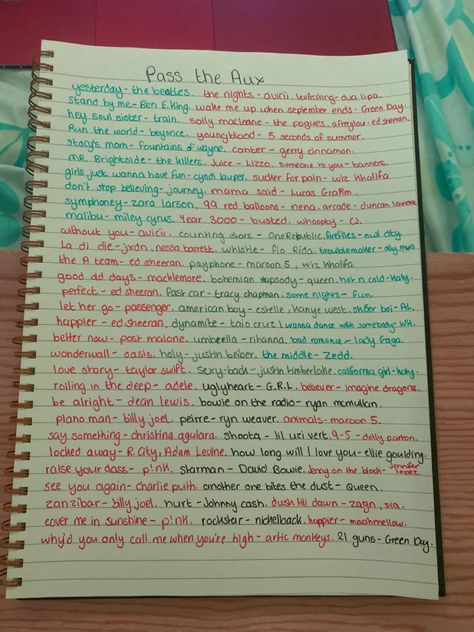 Pass the Aux
yesterday - the beatles. the nights - avicii. levitating - dua lipa.
stand by me - Ben E King. wake me up when september ends - Green Day.
hey, soul sister - train. sally macleane - the pogues. afterglow - ed sheeran.
Run the world - beyonce. youngblood - 5 seconds of summer.
stacy's mom - fountains of wayne. canter - gerry cinnamon.
MR. Brightside - the killers. Juice - Lizzo. someone to you - banners.
girls just wanna have fun - cyndi lauper. sucker for pain - wiz khalifa
don't stop believing - journey. mama said - Lucas Graham.
symphoney - zara larson. 99 red balloons - nena. arcade - duncan laurence
malibu - miley cyrus. Year 3000 - busted. whoopty - CJ.
without you - avicii. counting stars - OneRepublic. fireflies - owl city.
la di die - jxrdn, nessa barrett. whistle - flo Rida. troublemaker - olly murs.
the A team - ed sheeran. payphone - maroon 5, wiz khalifa.
good old days - macklemore. bohemian rhapsody - queen. hot n cold - katy.
perfect - ed sheeran. fast car - tracy chapman. some nights - fun.
let her go - passenger. american boy - estelle, kanye west. sk8er boi - AL.
happier - ed sheeran. dynamite - taio cruz. I wanna dance with somebody - WH.
better now - post malone. umbrella - rihanna. bad romance - lady gaga.
wonderwall - oasis. holy - justin beiber. the middle - Zedd.
love story - taylor swift. sexy-back - justin timberlake. california girl - katy.
rolling in the deep - adele. uglyheart - G.R.L. believer - imagine dragons.
be alright - dean lewis. bowie on the radio - ryan mcmullan
piano man - billy joel. peirre - ryn weaver. animals - maroon 5.
say something - christina aguilara. shoota - lil uzi vert. 9-5 - dolly parton.
locked away - R.City, Adam Levine. how long will I love you - ellie goulding.
raise your glass - p!nk. starman - David Bowie. Jenny on the block - Jennifer lopez.
see you again - charlie puth. another one bites the dust - queen.
zanzibar - billy joel. hurt - Johnny cash. dusk till dawn - zayn, sia.
cover me in sunshine - p!nk. rockstar - nickelback. happier - mashmellow.
why'd you only call me when you're high - artic monkeys. 21 guns - Green Day.